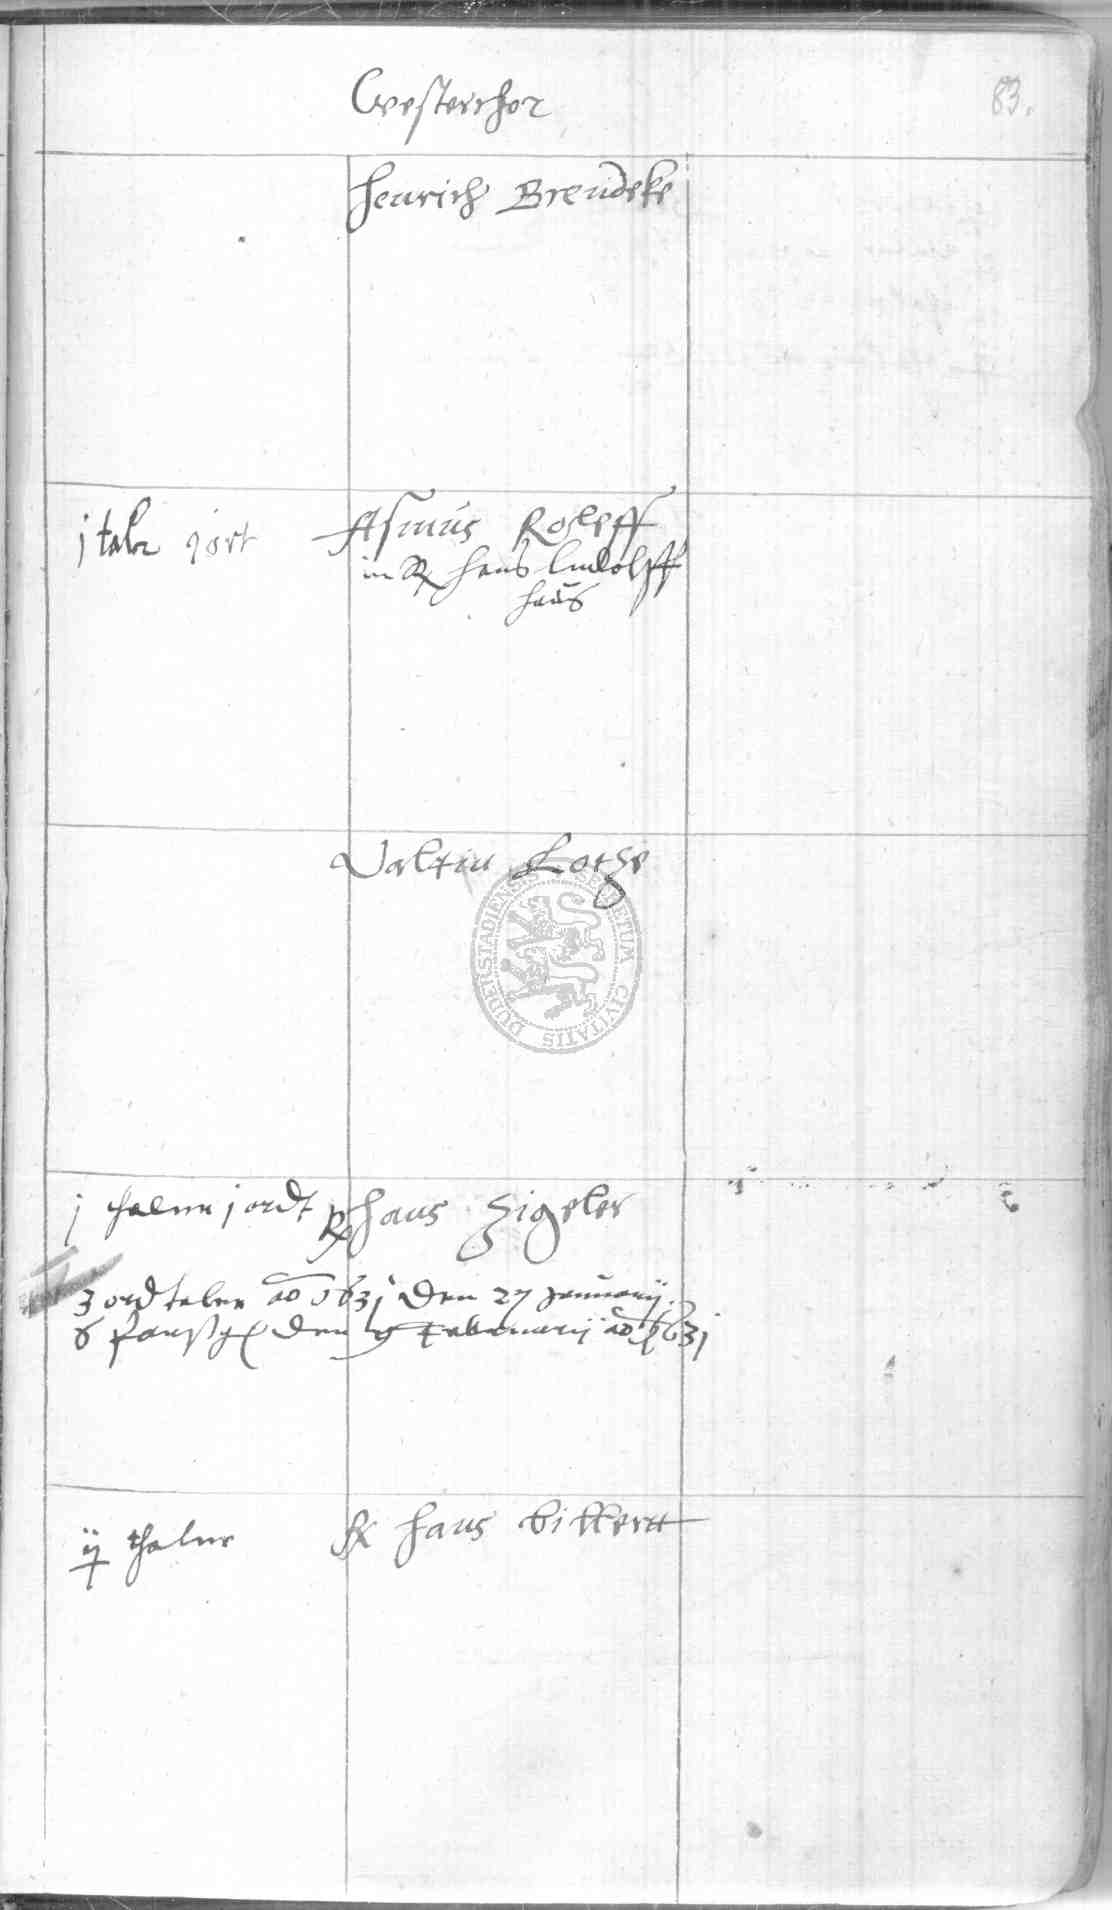 Westerthor
83.
Henrich Brendeke
j taler j ort
Asmus Roleff
in Hans Ludolff
haus
Valtin Lothe
SECRETUM CIVITATIS DUDERSTADIENSIS
j taler j ordt
Hans Zigeler
3 ord taler ao 1631 den 27 Januarij
6 den 9 Februarij ao 1631
ij thaler
Hans bikkertt